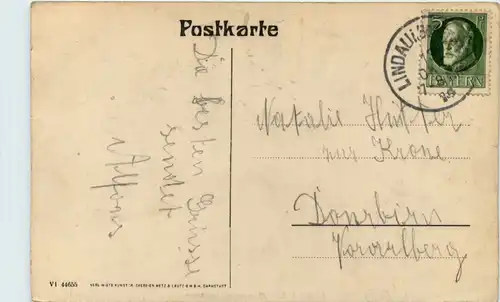 Postkarte
LINDAU i. B.
5 P F
BAYERN
Die besten Grüsse
sendet
Alfons
Natalie Hutter
zur Krone
Dornbirn
Vorarlberg
V1 44655